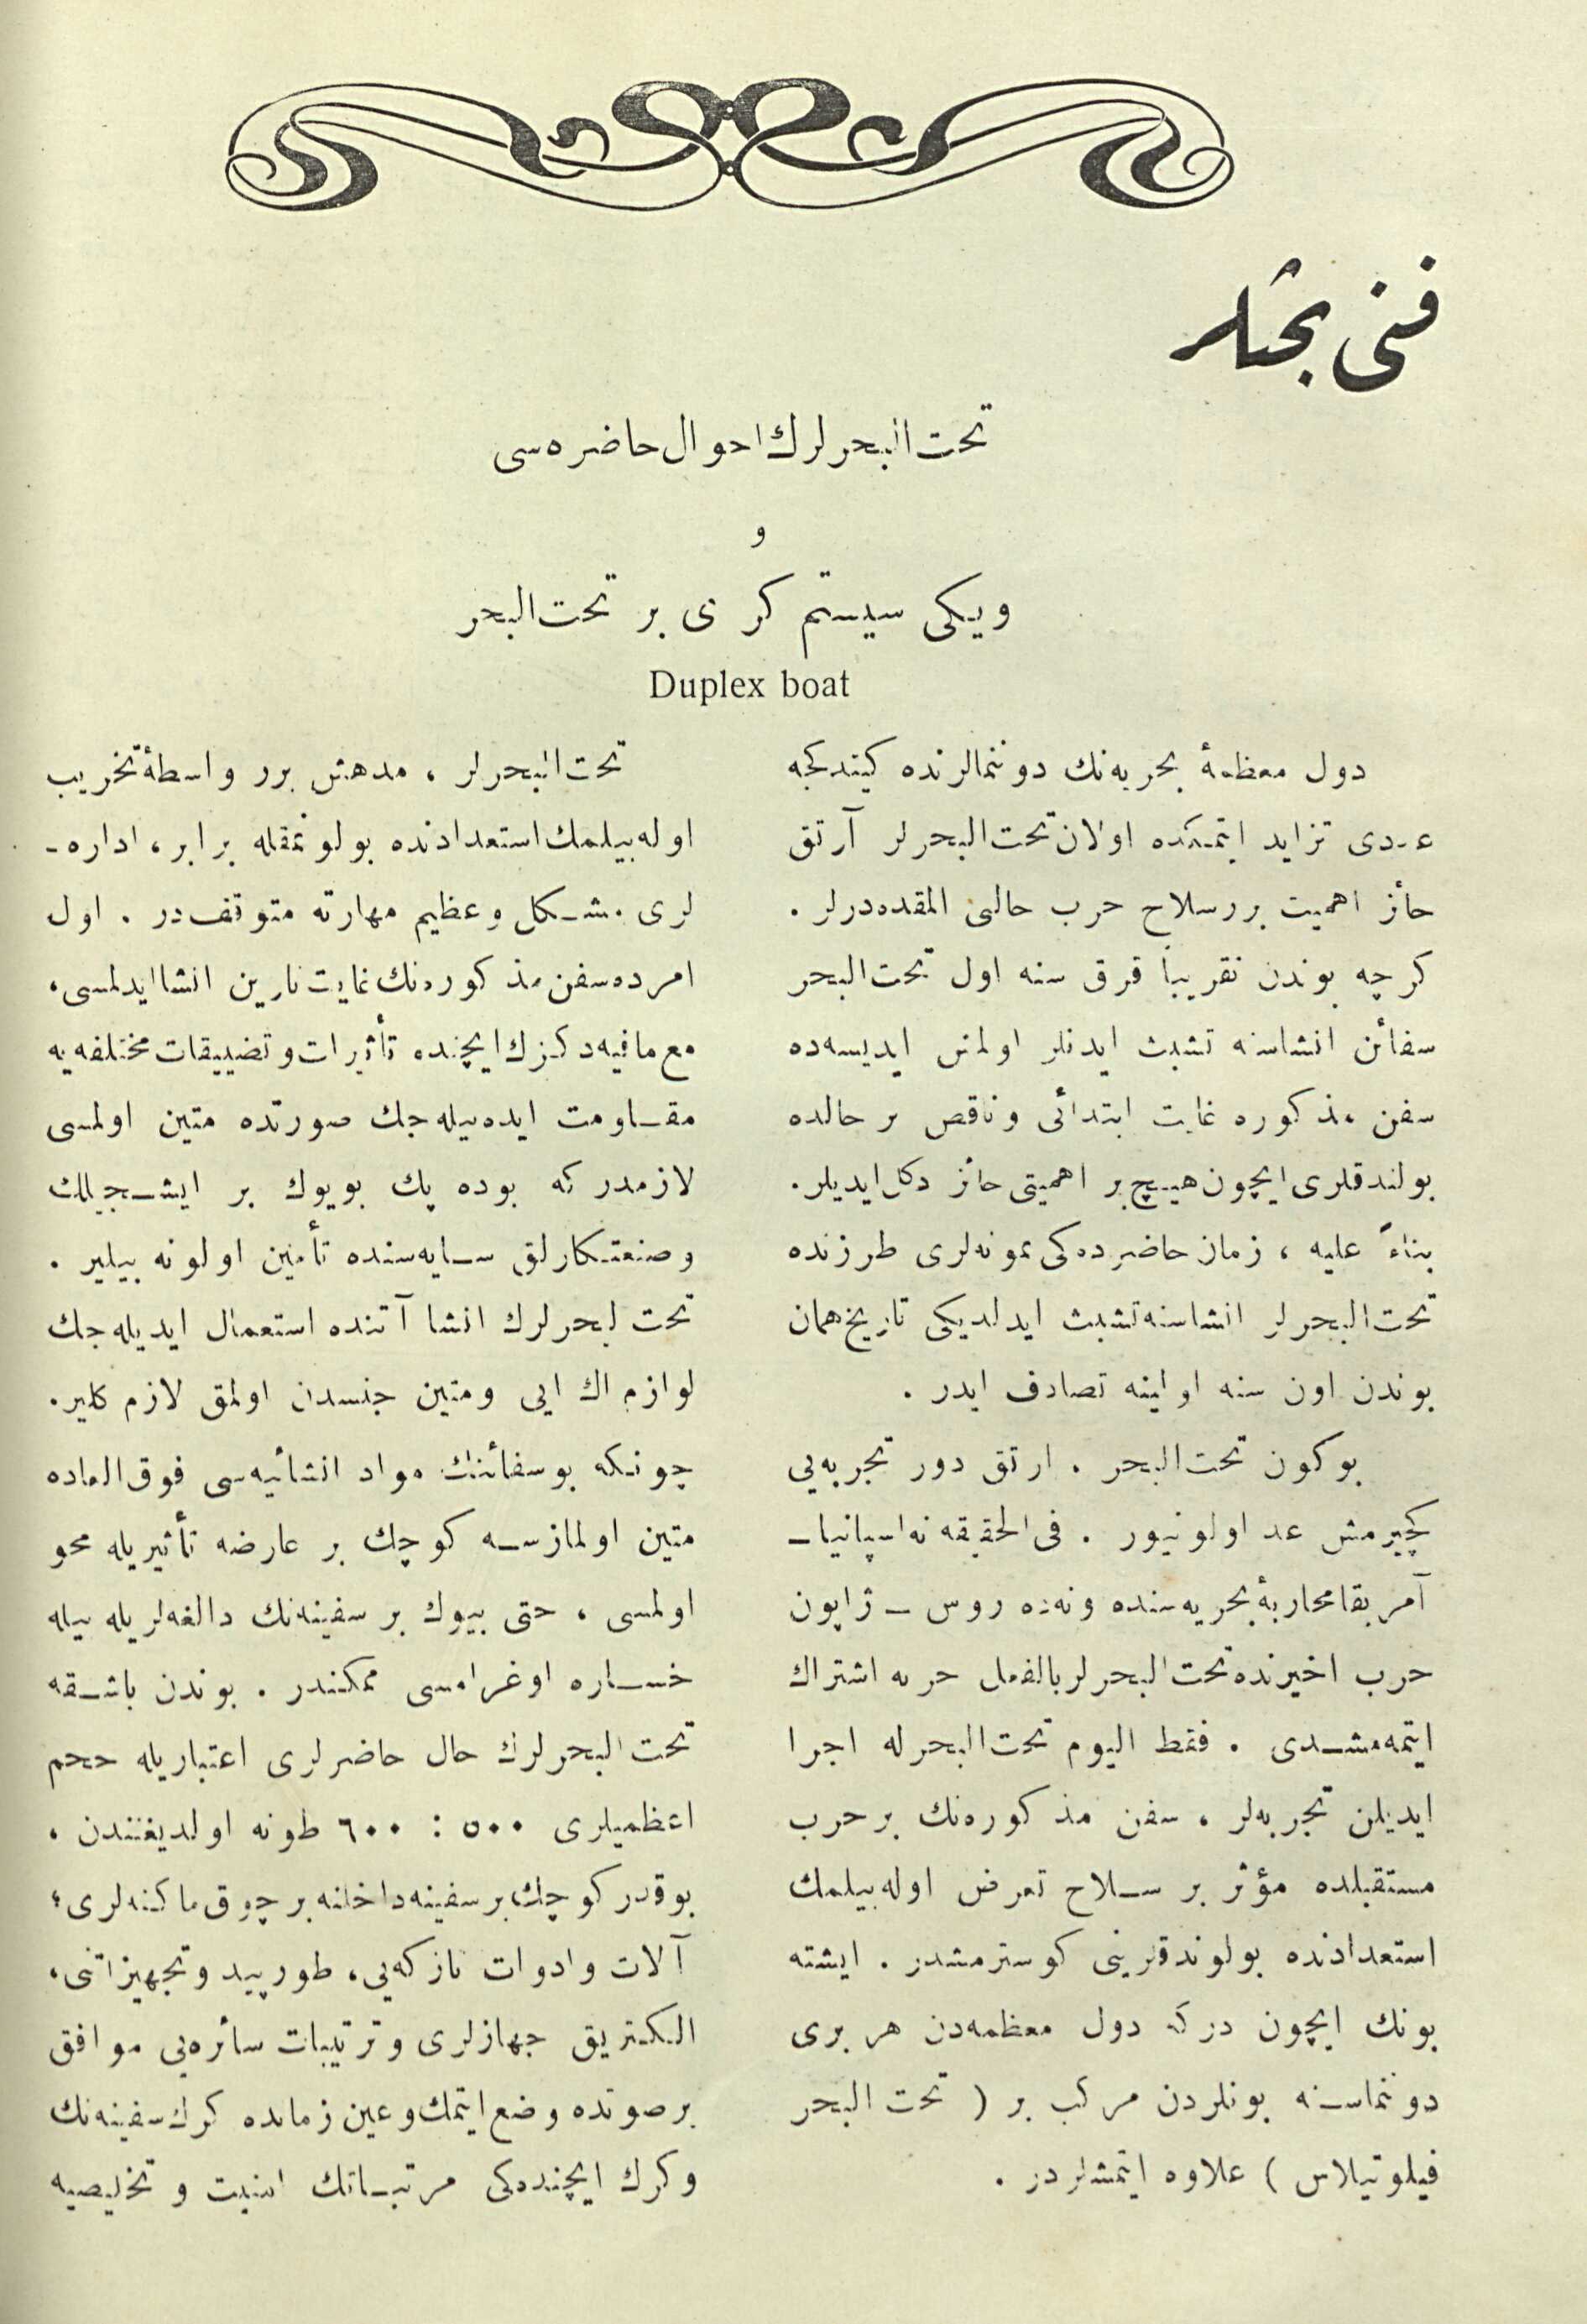 فنی بحثلر
تحت البحرلرك احوال حاضره‌سی
و
ویكی سیستم كر ی بر تحت البحر
Duplex boat
دول معظمهٔ بحریه‌نك دوننمالرنده كیتدكجه
عددی تزاید ایتمكده اولان تحت البحرلر آرتق
حائز اهمیت بررسلاح حرب حالنی المقده‌درلر .
كرچه بوندن تقریباً قرق سنه اول تحت البحر
سفائن انشاسنه تشبث ایدنلر اولمش ایدیسه‌ده
سفن مذكوره غایت ابتدائی وناقص بر حالده
بولندقلری ایچون هیچ بر اهمیتی حائز دكل ایدیلر.
بناءً علیه ، زمان حاضرده‌كی نمونه‌لری طرزنده
تحت البحرلر انشاسنه تشبث ایدلدیكی تاریخ همان
بوندن اون سنه اولینه تصادف ایدر .
بوكون تحت البحر . ارتق دور تجربه‌یی
كچیرمش عد اولونیور . فی الحقیقه نه اسپانیا ـ
آمریقا محاربهٔ بحریه‌سنده ونه‌ده روس ـ ژاپون
حرب اخیرنده تحت البحرلر بالفعل حربه اشتراك
ایتمه‌مشدی . فقط الیوم تحت البحرله اجرا
ایدیلن تجربه‌لر ، سفن مذكوره‌نك بر حرب
مستقبلده مؤثر بر سلاح تعرض اوله‌بیلمك
استعدادنده بولوندقلرینی كوسترمشدر . ایشته
بونك ایچون دركه دول معظمه‌دن هر بری
دوننماسنه بونلردن مركب بر ( تحت البحر
فیلوتیلاس ) علاوه ایتمشلردر .
تحت البحرلر ، مدهش برر واسطهٔ تخریب
اوله‌بیلمك استعدادنده بولونمقله برابر ، اداره ـ
لری مشكل وعظیم مهارته متوقف‌در . اول
امرده سفن مذكوره‌نك غایت نارین انشا ایدلمسی،
مع مافیه دكزك ایچنده تأثیرات وتضییقات مختلفه‌یه
مقاومت ایده‌بیله‌جك صورتده متین اولمسی
لازمدر كه بوده پك بویوك بر ایشجیلك
وصنعتكارلق سایه‌سنده تأمین اولونه بیلیر .
تحت لبحرلرك انشا آتنده استعمال ایدیله‌جك
لوازم اك ایی ومتین جنسدن اولمق لازم كلیر.
چونكه بو سفائنك مواد انشائیه‌سی فوق العاده
متین اولمازسه كوچك بر عارضه تأثیریله محو
اولمسی ، حتی بیوك بر سفینه‌نك دالغه‌لریله بیله
خساره اوغرامسی ممكندر . بوندن باشقه
تحت البحرلرك حال حاضرلری اعتباریله حجم
اعظمیلری ٥٠٠ : ٦٠٠ طونه اولدیغندن ،
بوقدر كوچك بر سفینه داخلنه بر چوق ماكنه‌لری ؛
آلات وادوات نازكه‌یی، طورپید وتجهیزاتنی،
الكتریق جهازلری وترتیبات سائره‌یی موافق
برصوتده وضع ایتمك وعین زمانده كرك سفینه‌نك
وكرك ایچنده‌كی مرتباتك امنیت و تخلیصیه